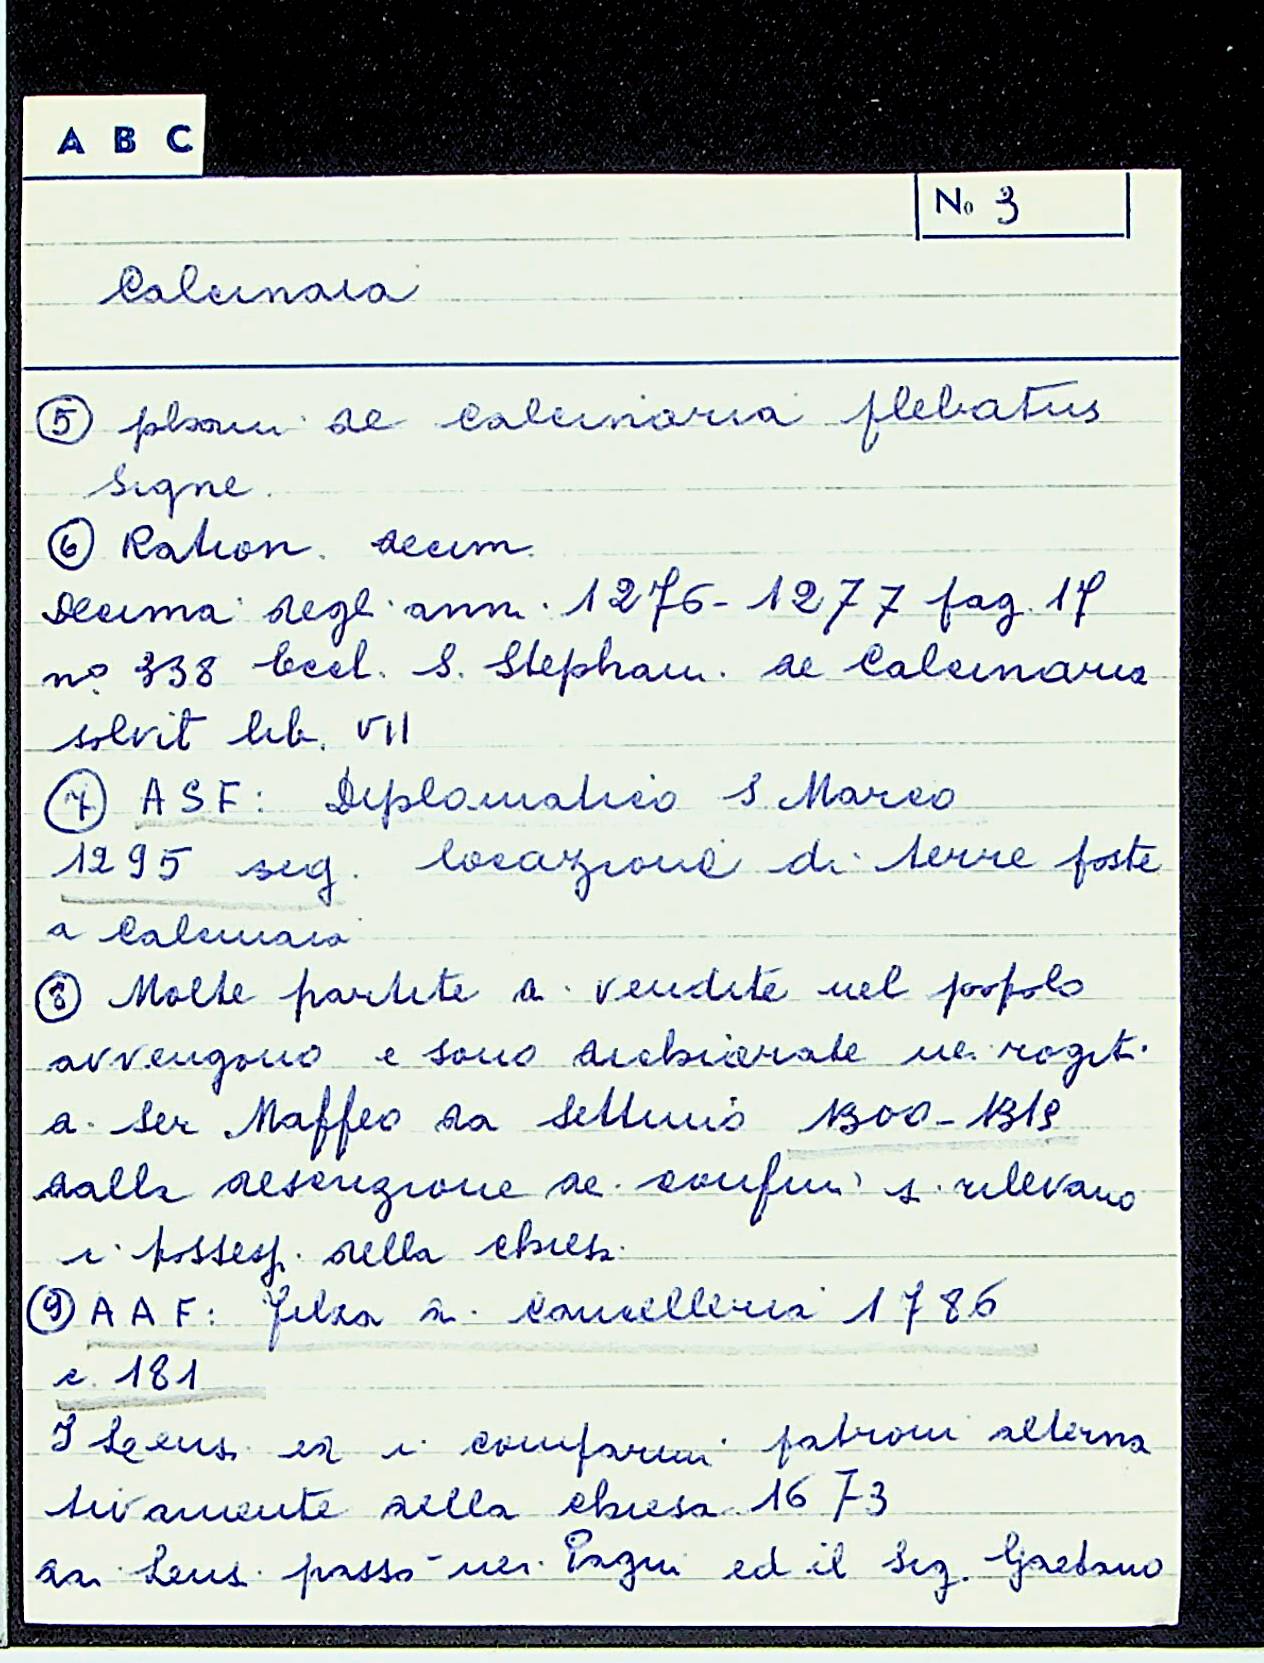 A B C
No 3
Calcinaia
⑤ plbani de Calcinaria plebatus
Signe.
⑥ Ration. decim.
Decima degli anni 1276-1277 pag. 17
n.º 338 Eccl. S. Stephani de Calcinaria
solvit lib. VII
⑦ ASF: Diplomatico S. Marco
1295 seg. locazione di terre poste
a Calcinaia
⑧ Molte partite di vendite nel popolo
avvengono e sono dichiarate nei rogiti
di Ser Maffeo da Settimo 1300-1319
dalla descrizione dei confini si rilevano
i possess. della chiesa.
⑨ AAF: Filza di Cancelleria 1786
c. 181
I ed i comparini patroni alterna
tivamente della chiesa. 1673
dai passò nei Pazzi ed il Sig. Gaetano